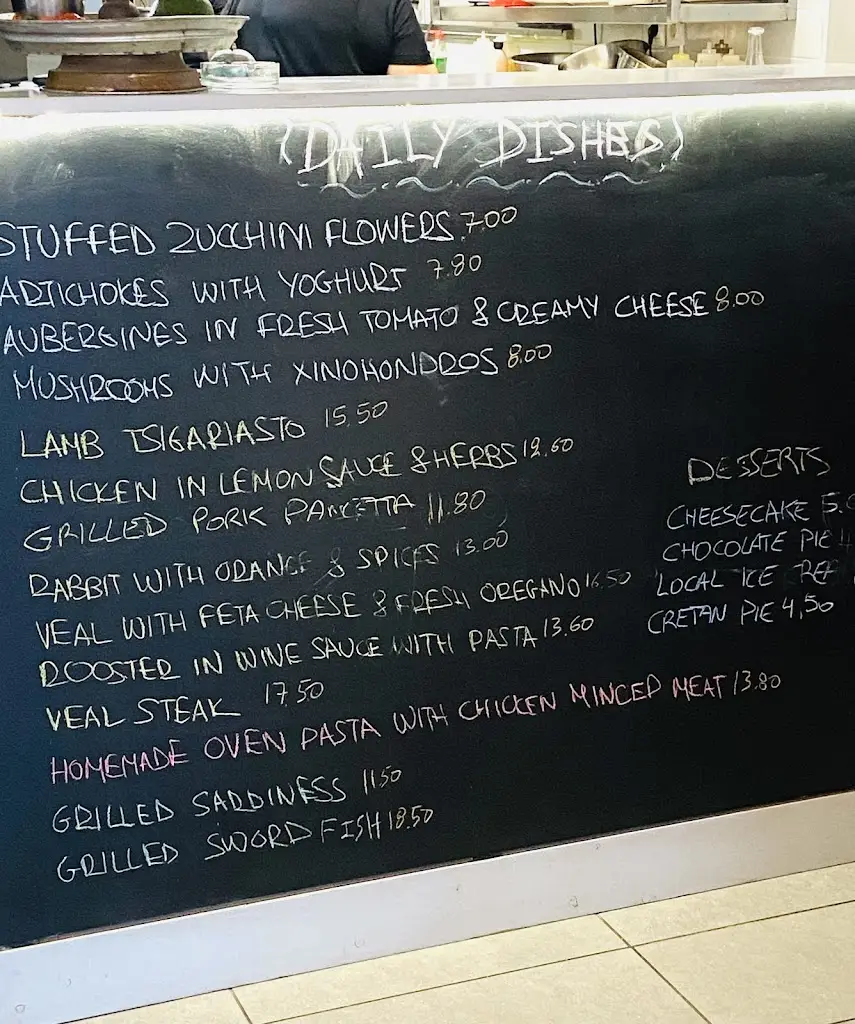 (DAILY DISHES)
STUFFED ZUCCHINI FLOWERS 7.00
ARTICHOKES WITH YOGHURT 7.80
AUBERGINES IN FRESH TOMATO & CREAMY CHEESE 8.00
MUSHROOMS WITH XINOHONDROS 8.00
LAMB TSIGARIASTO 15.50
CHICKEN IN LEMON SAUCE & HERBS 12.60
GRILLED PORK PANCETTA 11.80
RABBIT WITH ORANGE & SPICES 13.00
VEAL WITH FETA CHEESE & FRESH OREGANO 16.50
ROOSTER IN WINE SAUCE WITH PASTA 13.60
VEAL STEAK 17.50
HOMEMADE OVEN PASTA WITH CHICKEN MINCED MEAT 13.80
GRILLED SARDINESS 11.50
GRILLED SWORD FISH 18.50
DESSERTS
CHEESECAKE 5.
CHOCOLATE PIE
LOCAL ICE
CRETAN PIE 4,50